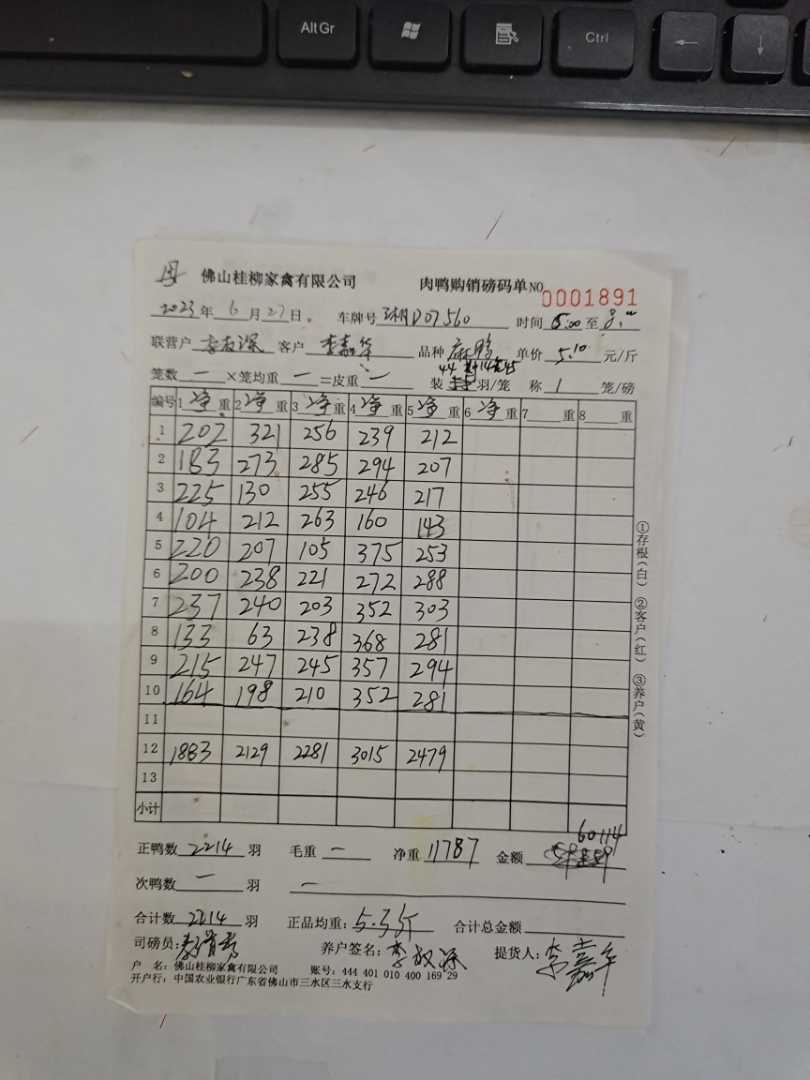 AltGr
Ctrl
母 佛山桂柳家禽有限公司 肉鸭购销磅码单 NO 0001891
2023年6月27日。 车牌号 湘D07560 时间 5:00 至 8:00
联营户 客户 李嘉华 品种 麻鸭 单价 5.10 元/斤
笼数 一 ×笼均重 一 =皮重 一 装 羽/笼 称 1 笼/磅
编号 1 净 重 2 净 重 3 净 重 4 净 重 5 净 重 6 净 重 7 重 8 重
1 202 321 256 239 212
2 183 273 285 294 207
3 225 130 255 246 217
4 104 212 263 160 143
5 220 207 105 375 253
6 200 238 221 272 288
7 237 240 203 352 303
8 133 63 238 368 281
9 215 247 245 357 294
10 164 198 210 352 281
11
12 1883 2129 2281 3015 2479
13
小计
①存根(白) ②客户(红) ③养户(黄)
60114
正鸭数 2214 羽 毛重 一 净重 11787 金额
次鸭数 一 羽 一
合计数 2214 羽 正品均重: 5.3斤 合计总金额
司磅员: 养户签名: 提货人: 李嘉华
户 名: 佛山桂柳家禽有限公司 账号: 444 401 010 400 169 29
开户行: 中国农业银行广东省佛山市三水区三水支行